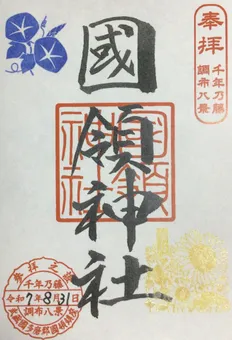 奉拝
千年乃藤
調布八景
國領神社
國領神社
参拝之証
千年乃藤
令和7年8月31日
調布八景
武蔵國多摩郡國領鎮座